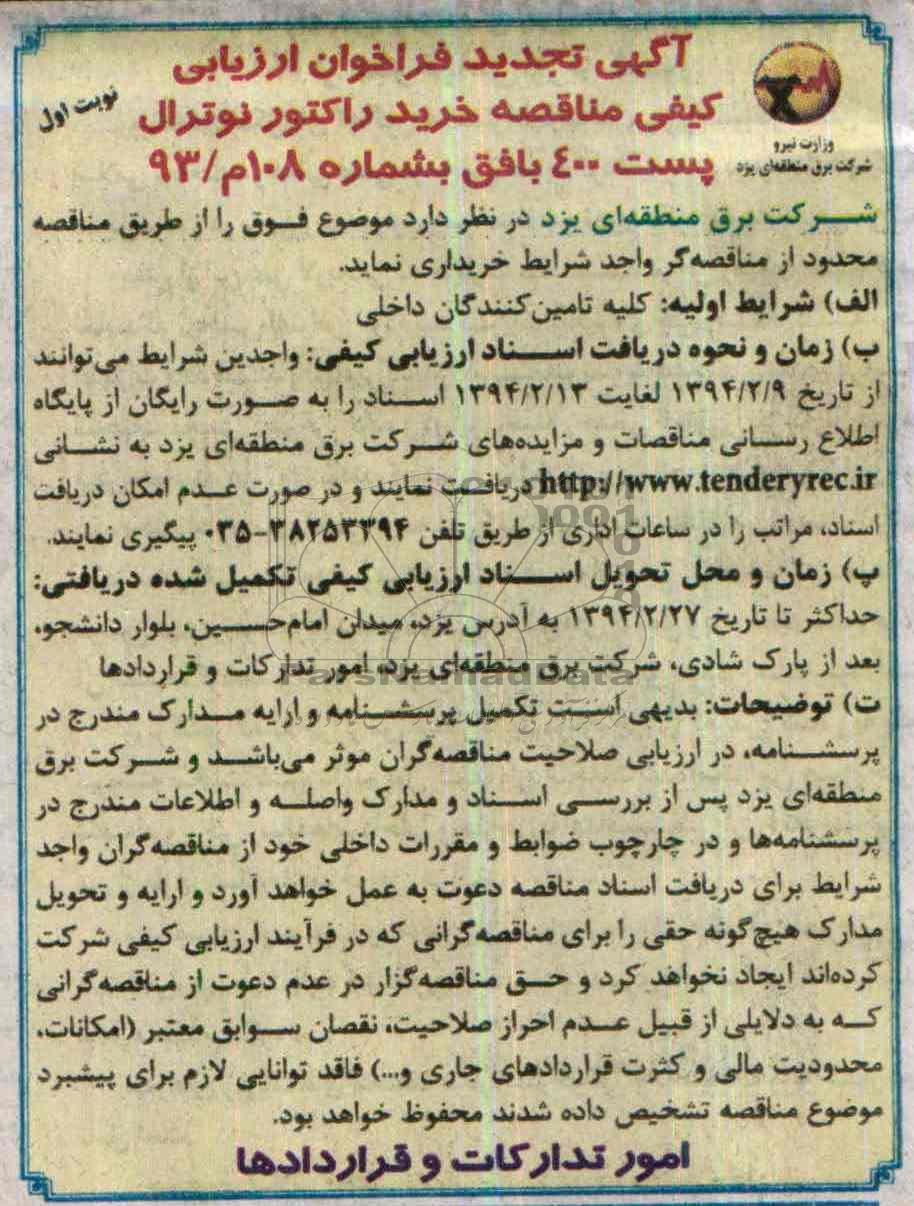 آگهی تجدید فراخوان ارزیابی
کیفی مناقصه خرید راکتور نوترال
پست ۴۰۰ بافق بشماره ۱۰۸م/۹۳
نوبت اول
وزارت نیرو
شرکت برق منطقه‌ای یزد
شرکت برق منطقه‌ای یزد در نظر دارد موضوع فوق را از طریق مناقصه
محدود از مناقصه‌گر واجد شرایط خریداری نماید.
الف) شرایط اولیه: کلیه تامین‌کنندگان داخلی
ب) زمان و نحوه دریافت اسناد ارزیابی کیفی: واجدین شرایط می‌توانند
از تاریخ ۱۳۹۴/۲/۹ لغایت ۱۳۹۴/۲/۱۳ اسناد را به صورت رایگان از پایگاه
اطلاع رسانی مناقصات و مزایده‌های شرکت برق منطقه‌ای یزد به نشانی
http://www.tenderyrec.ir دریافت نمایند و در صورت عدم امکان دریافت
اسناد، مراتب را در ساعات اداری از طریق تلفن ۳۸۲۵۳۳۹۴-۰۳۵ پیگیری نمایند.
پ) زمان و محل تحویل اسناد ارزیابی کیفی تکمیل شده دریافتی:
حداکثر تا تاریخ ۱۳۹۴/۲/۲۷ به آدرس یزد، میدان امام‌حسین، بلوار دانشجو،
بعد از پارک شادی، شرکت برق منطقه‌ای یزد، امور تدارکات و قراردادها
ParsNamadData
ت) توضیحات: بدیهی است تکمیل پرسشنامه و ارایه مدارک مندرج در
پرسشنامه، در ارزیابی صلاحیت مناقصه‌گران موثر می‌باشد و شرکت برق
منطقه‌ای یزد پس از بررسی اسناد و مدارک واصله و اطلاعات مندرج در
پرسشنامه‌ها و در چارچوب ضوابط و مقررات داخلی خود از مناقصه‌گران واجد
شرایط برای دریافت اسناد مناقصه دعوت به عمل خواهد آورد و ارایه و تحویل
مدارک هیچ‌گونه حقی را برای مناقصه‌گرانی که در فرآیند ارزیابی کیفی شرکت
کرده‌اند ایجاد نخواهد کرد و حق مناقصه‌گزار در عدم دعوت از مناقصه‌گرانی
که به دلایلی از قبیل عدم احراز صلاحیت، نقصان سوابق معتبر (امکانات،
محدودیت مالی و کثرت قراردادهای جاری و...) فاقد توانایی لازم برای پیشبرد
موضوع مناقصه تشخیص داده شدند محفوظ خواهد بود.
امور تدارکات و قراردادها